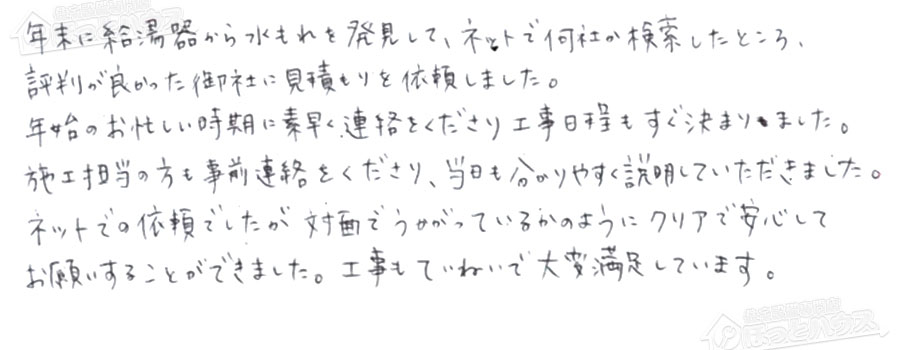 年末に給湯器から水もれを発見して、ネットで何社か検索したところ、
評判が良かった御社に見積もりを依頼しました。
年始のお忙しい時期に素早く連絡をくださり工事日程もすぐ決まりました。
施工担当の方も事前連絡をくださり、当日も分かりやすく説明していただきました。
ネットでの依頼でしたが対面でうかがっているかのようにクリアで安心して
お願いすることができました。工事もていねいで大変満足しています。
住宅設備専門店
ほっとハウス